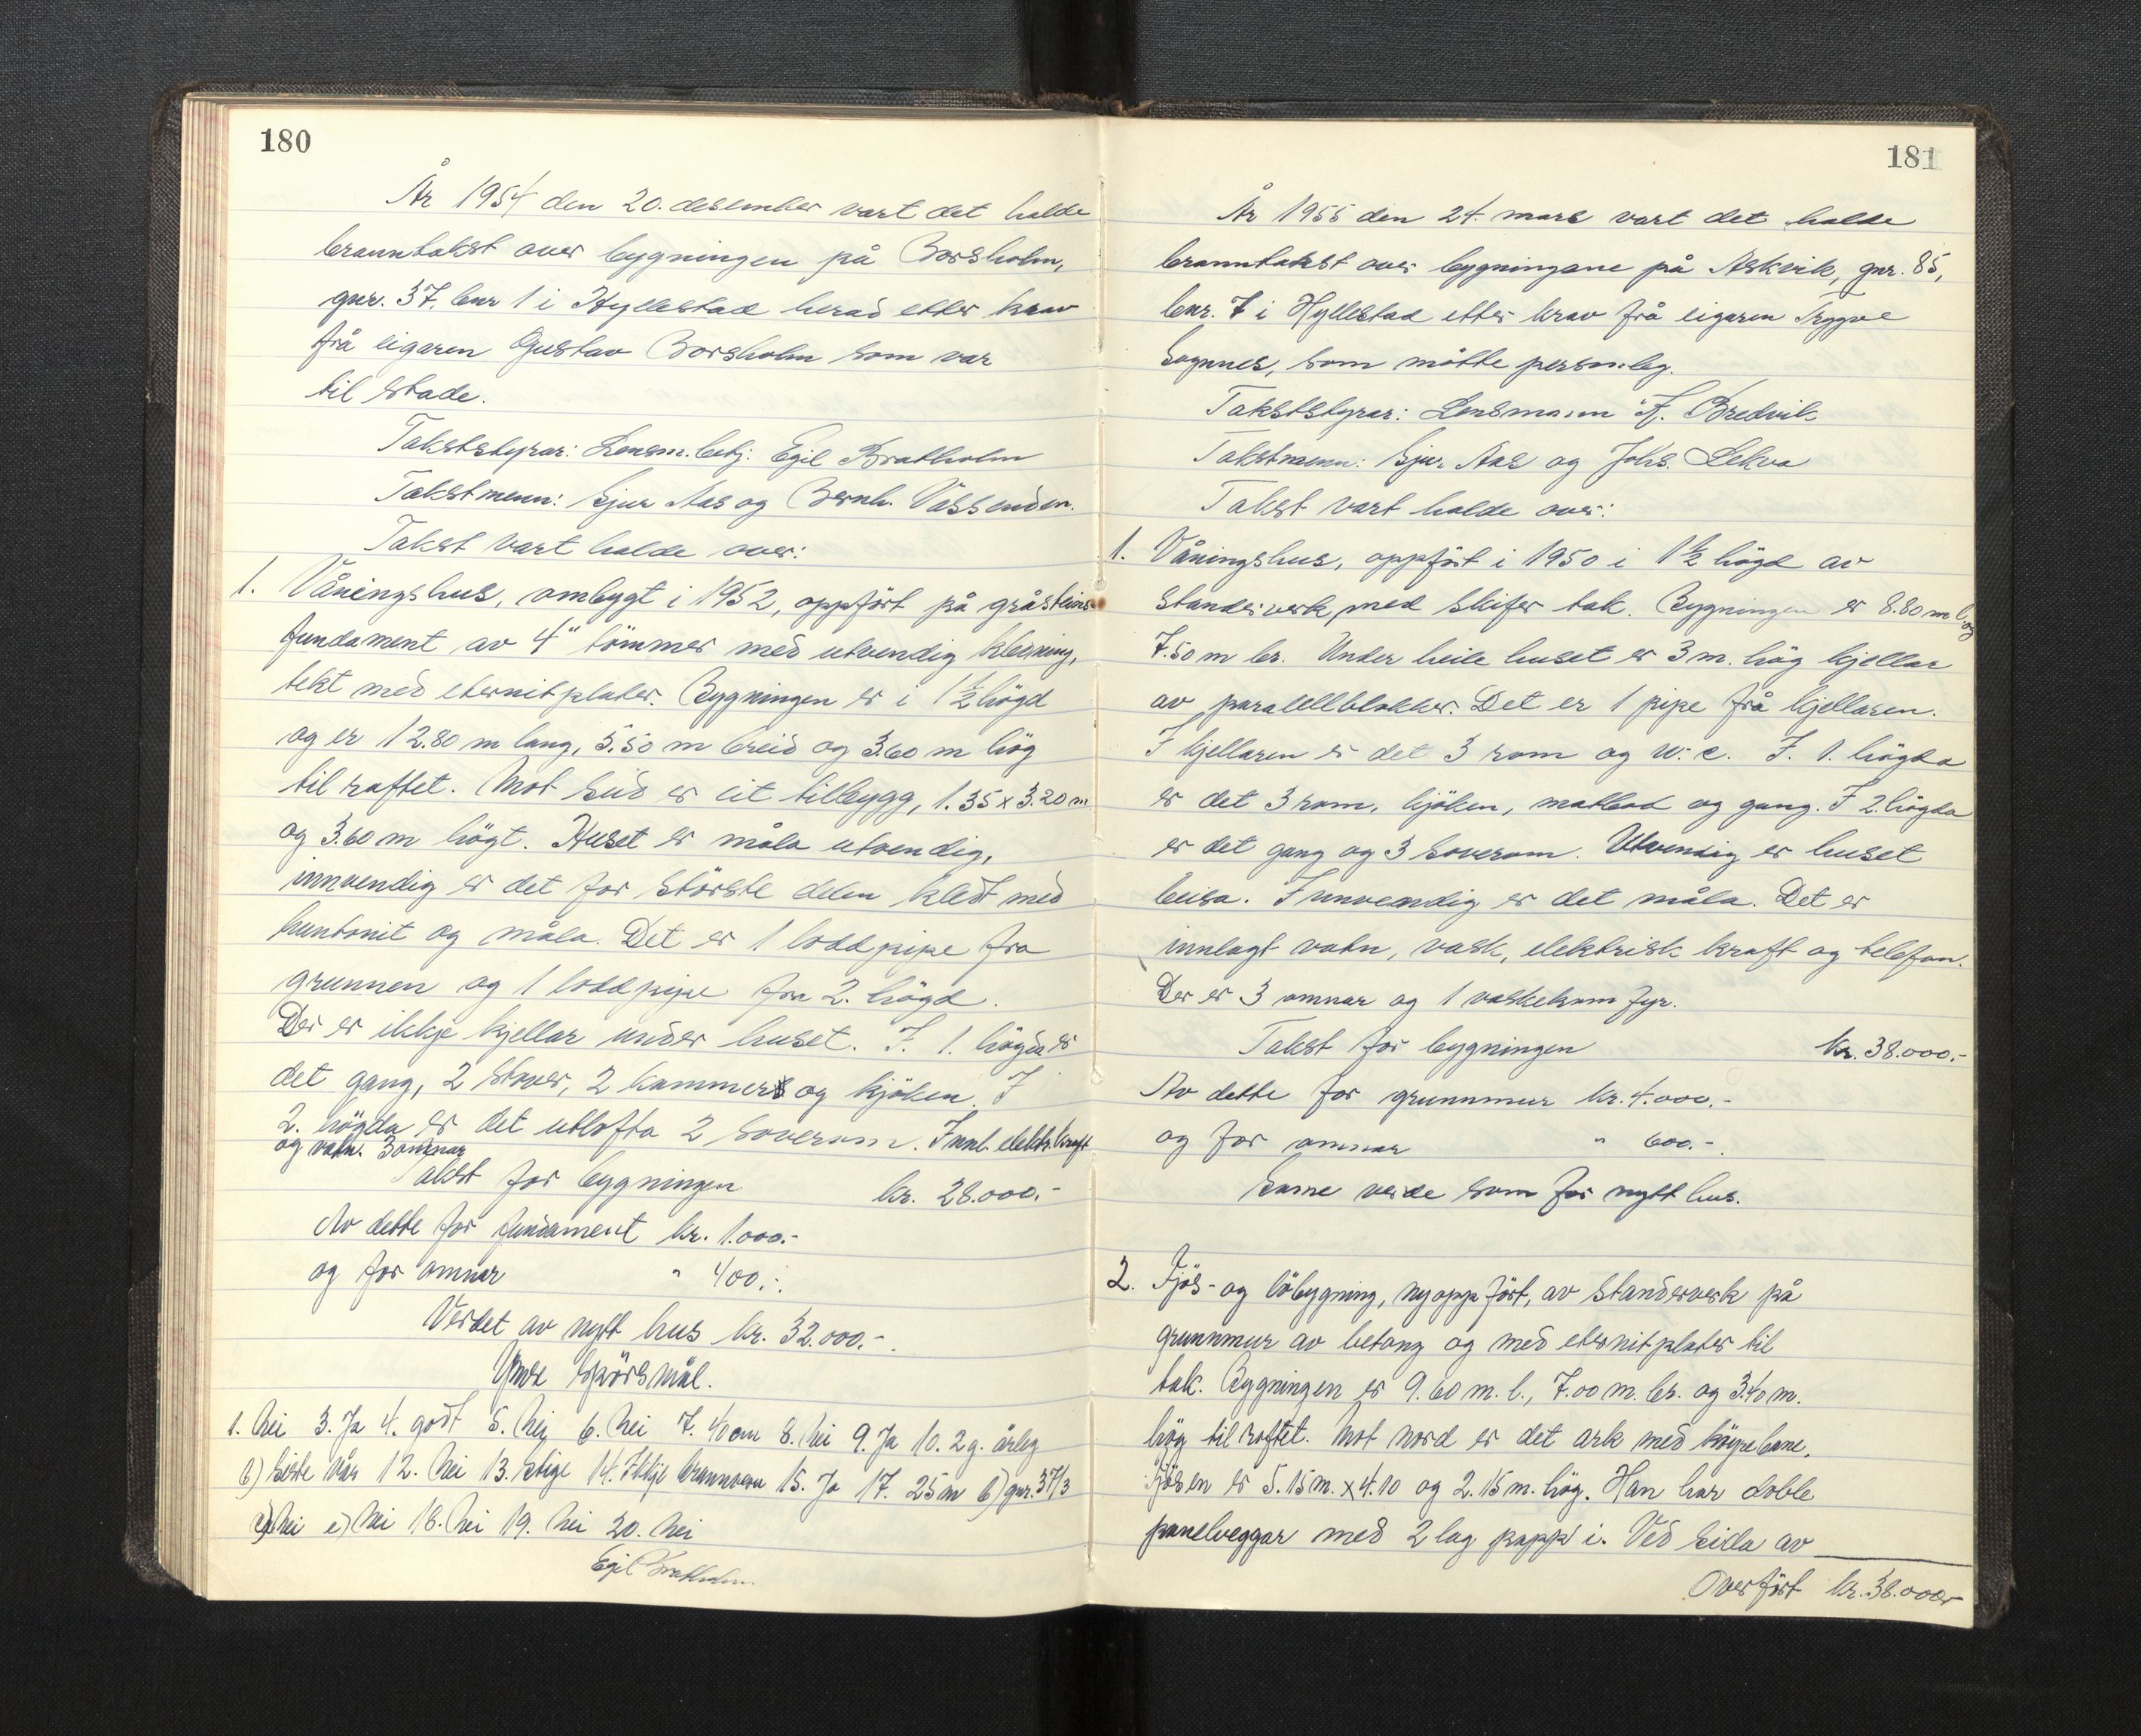 180
År 1954 den 20. desember vart det halde
branntakst over bygningen på Borsholm,
gnr. 37. bnr 1 i Hyllestad herad etter krav
frå eigaren Gustav Borsholm som var
til stade.
Takststyrar: Lensm.betj: Egil Bratholm
Takstmenn: Sjur Aas og Bernh. Vassenden.
Takst vart halde over:
1. Våningshus, ombygt i 1952, oppfört på gråsteins-
fundament av 4" tömmer med utvendig kledning,
tekt med eternitplater. Bygningen er i 1 1/2 högd
og er 12.80 m lang, 5.50 m breid og 3.60 m hög
til raftet. Mot Sud er eit tilbygg, 1.35 x 3.20 m
og 3.60 m högt. Huset er måla utvendig,
innvendig er det for störste delen kledt med
huntonit og måla. Det er 1 loddpipe fra
grunnen og 1 loddpipe fra 2. högd.
Der er ikkje kjellar under huset. I. 1. högda er
det gang, 2 stover, 2 kammers og kjöken. I
2. högda er det utlofta 2 soverom. Innl. elektr. kraft
og vatn. 3 omnar
Takst for bygningen kr. 28.000.-
Av dette for fundament kr. 1.000.-
og for omnar " 400.-
Verdet av nytt hus kr. 32.000.-
Ymse spörsmål.
1. Nei 3. Ja 4. godt 5. Nei 6. Nei 7. 40 cm 8. Nei 9. Ja 10. 2 g. årleg
b) Siste vår 12. Nei 13. Stige 14. Ikkje brannvern 15. Ja 17. 25 m b) gnr. 37/3
c) Nei e) Nei 18. Nei 19. Nei 20. Nei
Egil Bratholm
181
År 1955 den 24. mars vart det halde
branntakst over bygningane på Askvik, gnr. 85,
bnr. 7 i Hyllestad etter krav frå eigaren Trygve
Sognnes, som mötte personleg.
Takststyrar: Lensmann A. Bredvik
Takstmenn: Sjur Aas og Johs. Lekva
Takst vart halde over:
1. Våningshus, oppfört i 1950 i 1 1/2 högd av
standerverk, med skifer tak. Bygningen er 8.80 m l. og
7.50 m br. Under heile huset er 3 m. hög kjellar
av paralellblokker. Det er 1 pipe frå kjellaren.
I kjellaren er det 3 rom og w.c. I. 1. högda
er det 3 rom, kjöken, matbod og gang. I 2. högda
er det gang og 3 soverom. Utvendig er huset
beisa. Innvendig er det måla. Det er
innlagt vatn, vask, elektrisk kraft og telefon.
Der er 3 omnar og 1 vaskekom fyr.
Takst for bygningen kr. 38.000.-
Av dette for grunnmur kr. 4.000.-
og for omnar " 600.-
Same verde som for nytt hus.
2. Fjös- og löbygning, nyoppfört, av standerverk på
grunnmur av betong og med eternitplater til
tak. Bygningen er 9.60 m. l., 7.00 m. br. og 3.40 m.
hög til raftet. Mot nord er det ark med köyrebane.
Fjösen er 5.15 m. x 4.10 og 2.15 m. hög. Han har doble
panelveggar med 2 lag papp i. Ved sida av
Overfört kr. 38.000.-